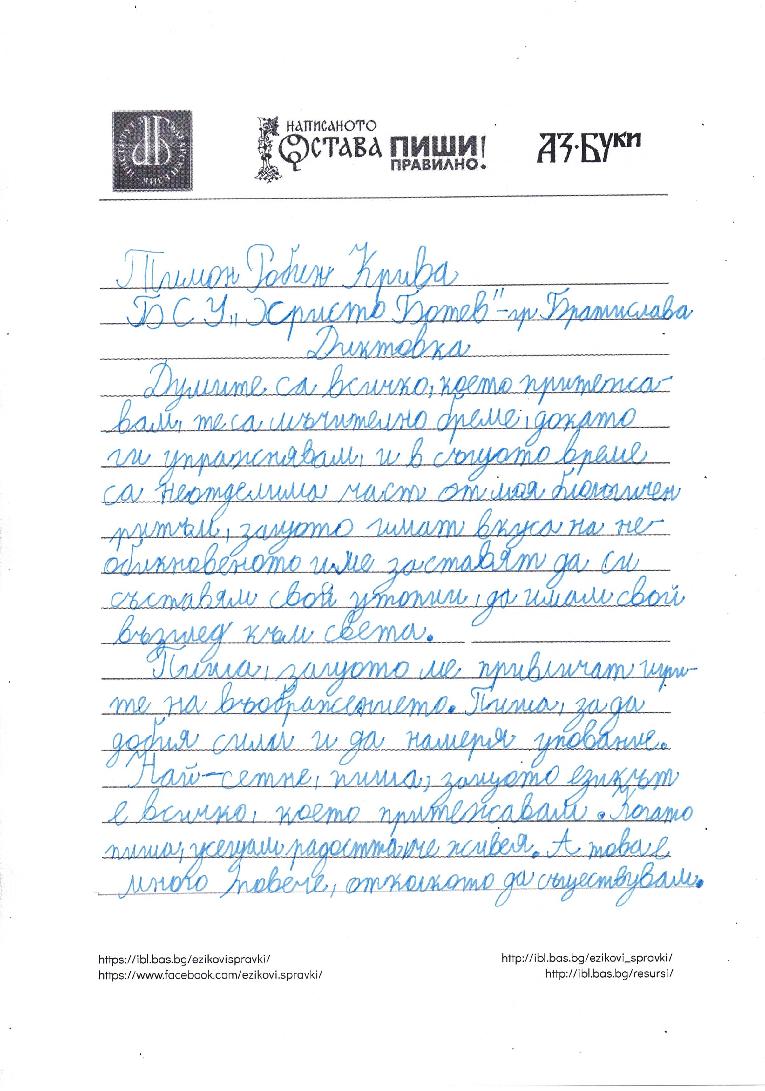 НАПИСАНОТО
ОСТАВА ПИШИ
ПРАВИЛНО!
АЗ·БУКИ
Тимон Робин Крива
БСУ „Христо Ботев" - гр. Братислава
Диктовка
Думите са всичко, което притежа-
вам, те са мъчително бреме, докато
ги упражнявам, и в същото време
са неотделима част от моя биологичен
ритъм, защото имат вкуса на не-
обикновеното и ме заставят да си
съставям свой утопии, да имам свой
възглед към света.
Пиша, защото ме привличат игри-
те на въображението. Пиша, за да
добия сили и да намеря упование.
Най-сетне, пиша, защото езикът
е всичко, което притежавам. Когато
пиша, усещам радостта, че живея. А това е
много повече, отколкото да съществувам.
https://ibl.bas.bg/ezikovispravki/ http://ibl.bas.bg/ezikovi_spravki/
https://www.facebook.com/ezikovi.spravki/ http://ibl.bas.bg/resursi/